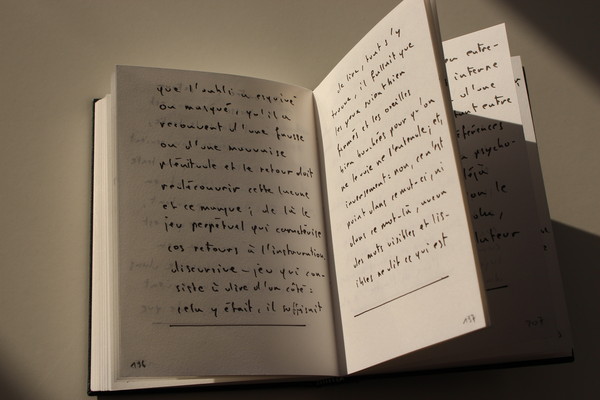 que l'oubli a esquivé
ou masqué, qu'il a
recouvert d'une fausse
ou d'une mauvaise
plénitude et le retour doit
redécouvrir cette lacune
et ce manque ; de là le
jeu perpétuel qui caractérise
ces retours à l'instauration
discursive – jeu qui con-
siste à dire d'un côté :
cela y était, il suffisait
de lire, tout s'y
trouve, il fallait que
les yeux soient bien
fermés et les oreilles
bien bouchées pour qu'on
ne le voie ni l'entende ; et,
inversement : non, ce n'est
point dans ce mot-ci, ni
dans ce mot-là, aucun
des mots visibles et lis-
ibles ne dit ce qui est
entre-
interne
d'une
entre
férences
psycho-
déjà
le